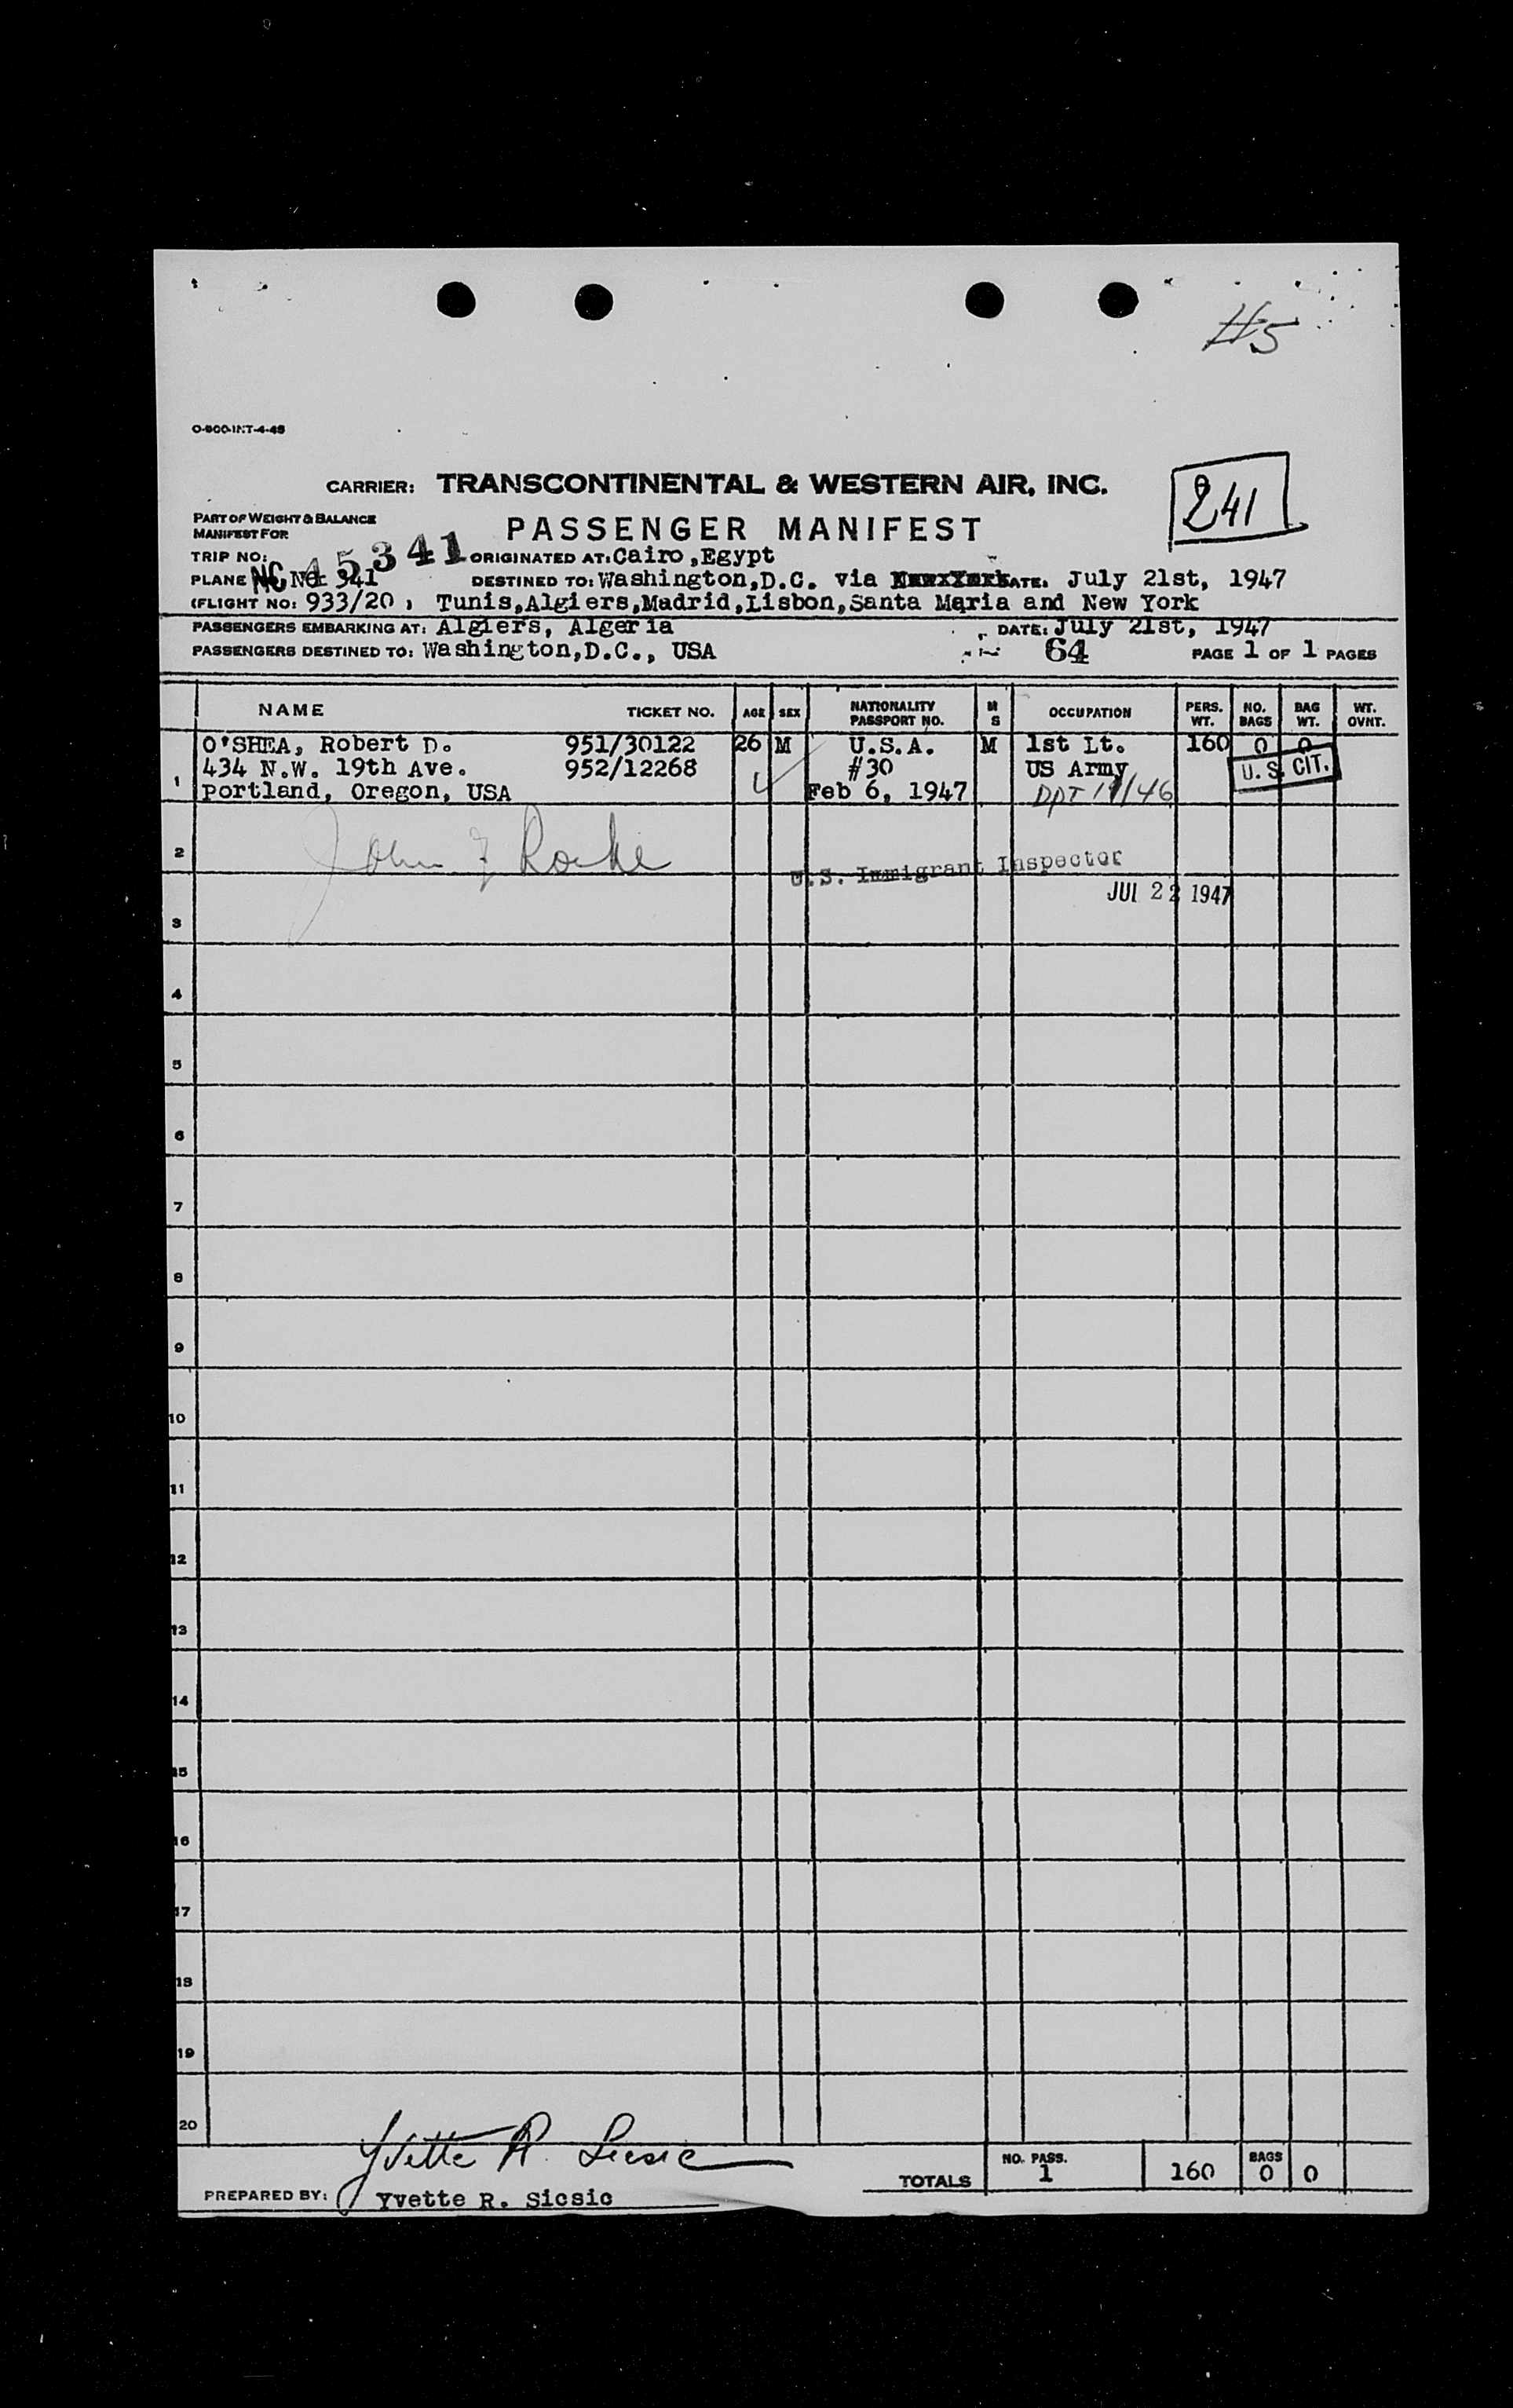 #5
CARRIER: TRANSCONTINENTAL & WESTERN AIR, INC.
241
PART OF WEIGHT & BALANCE
MANIFEST FOR
PASSENGER MANIFEST
TRIP NO: 45341 ORIGINATED AT: Cairo, Egypt
PLANE NC No: 341 DESTINED TO: Washington, D.C. via DATE. July 21st, 1947
(FLIGHT NO: 933/20, Tunis, Algiers, Madrid, Lisbon, Santa Maria and New York
PASSENGERS EMBARKING AT: Algiers, Algeria DATE: July 21st, 1947
PASSENGERS DESTINED TO: Washington, D.C., USA 64 PAGE 1 OF 1 PAGES
NAME TICKET NO. AGE SEX NATIONALITY PASSPORT NO. M S OCCUPATION PERS. WT. NO. BAGS BAG WT. WT. OVNT.
O'SHEA, Robert D. 951/30122 26 M U.S.A. M 1st Lt. 160 0 0
434 N.W. 19th Ave. 952/12268 #30 US Army U.S. CIT.
1 Portland, Oregon, USA Feb 6, 1947
2 John
U.S. Immigrant Inspector
JUL 22 1947
3
4
5
6
7
8
9
10
11
12
13
14
15
16
17
18
19
20
Yvette R. Sicsic
TOTALS NO. PASS. 1 160 BAGS 0 0
PREPARED BY: Yvette R. Sicsic